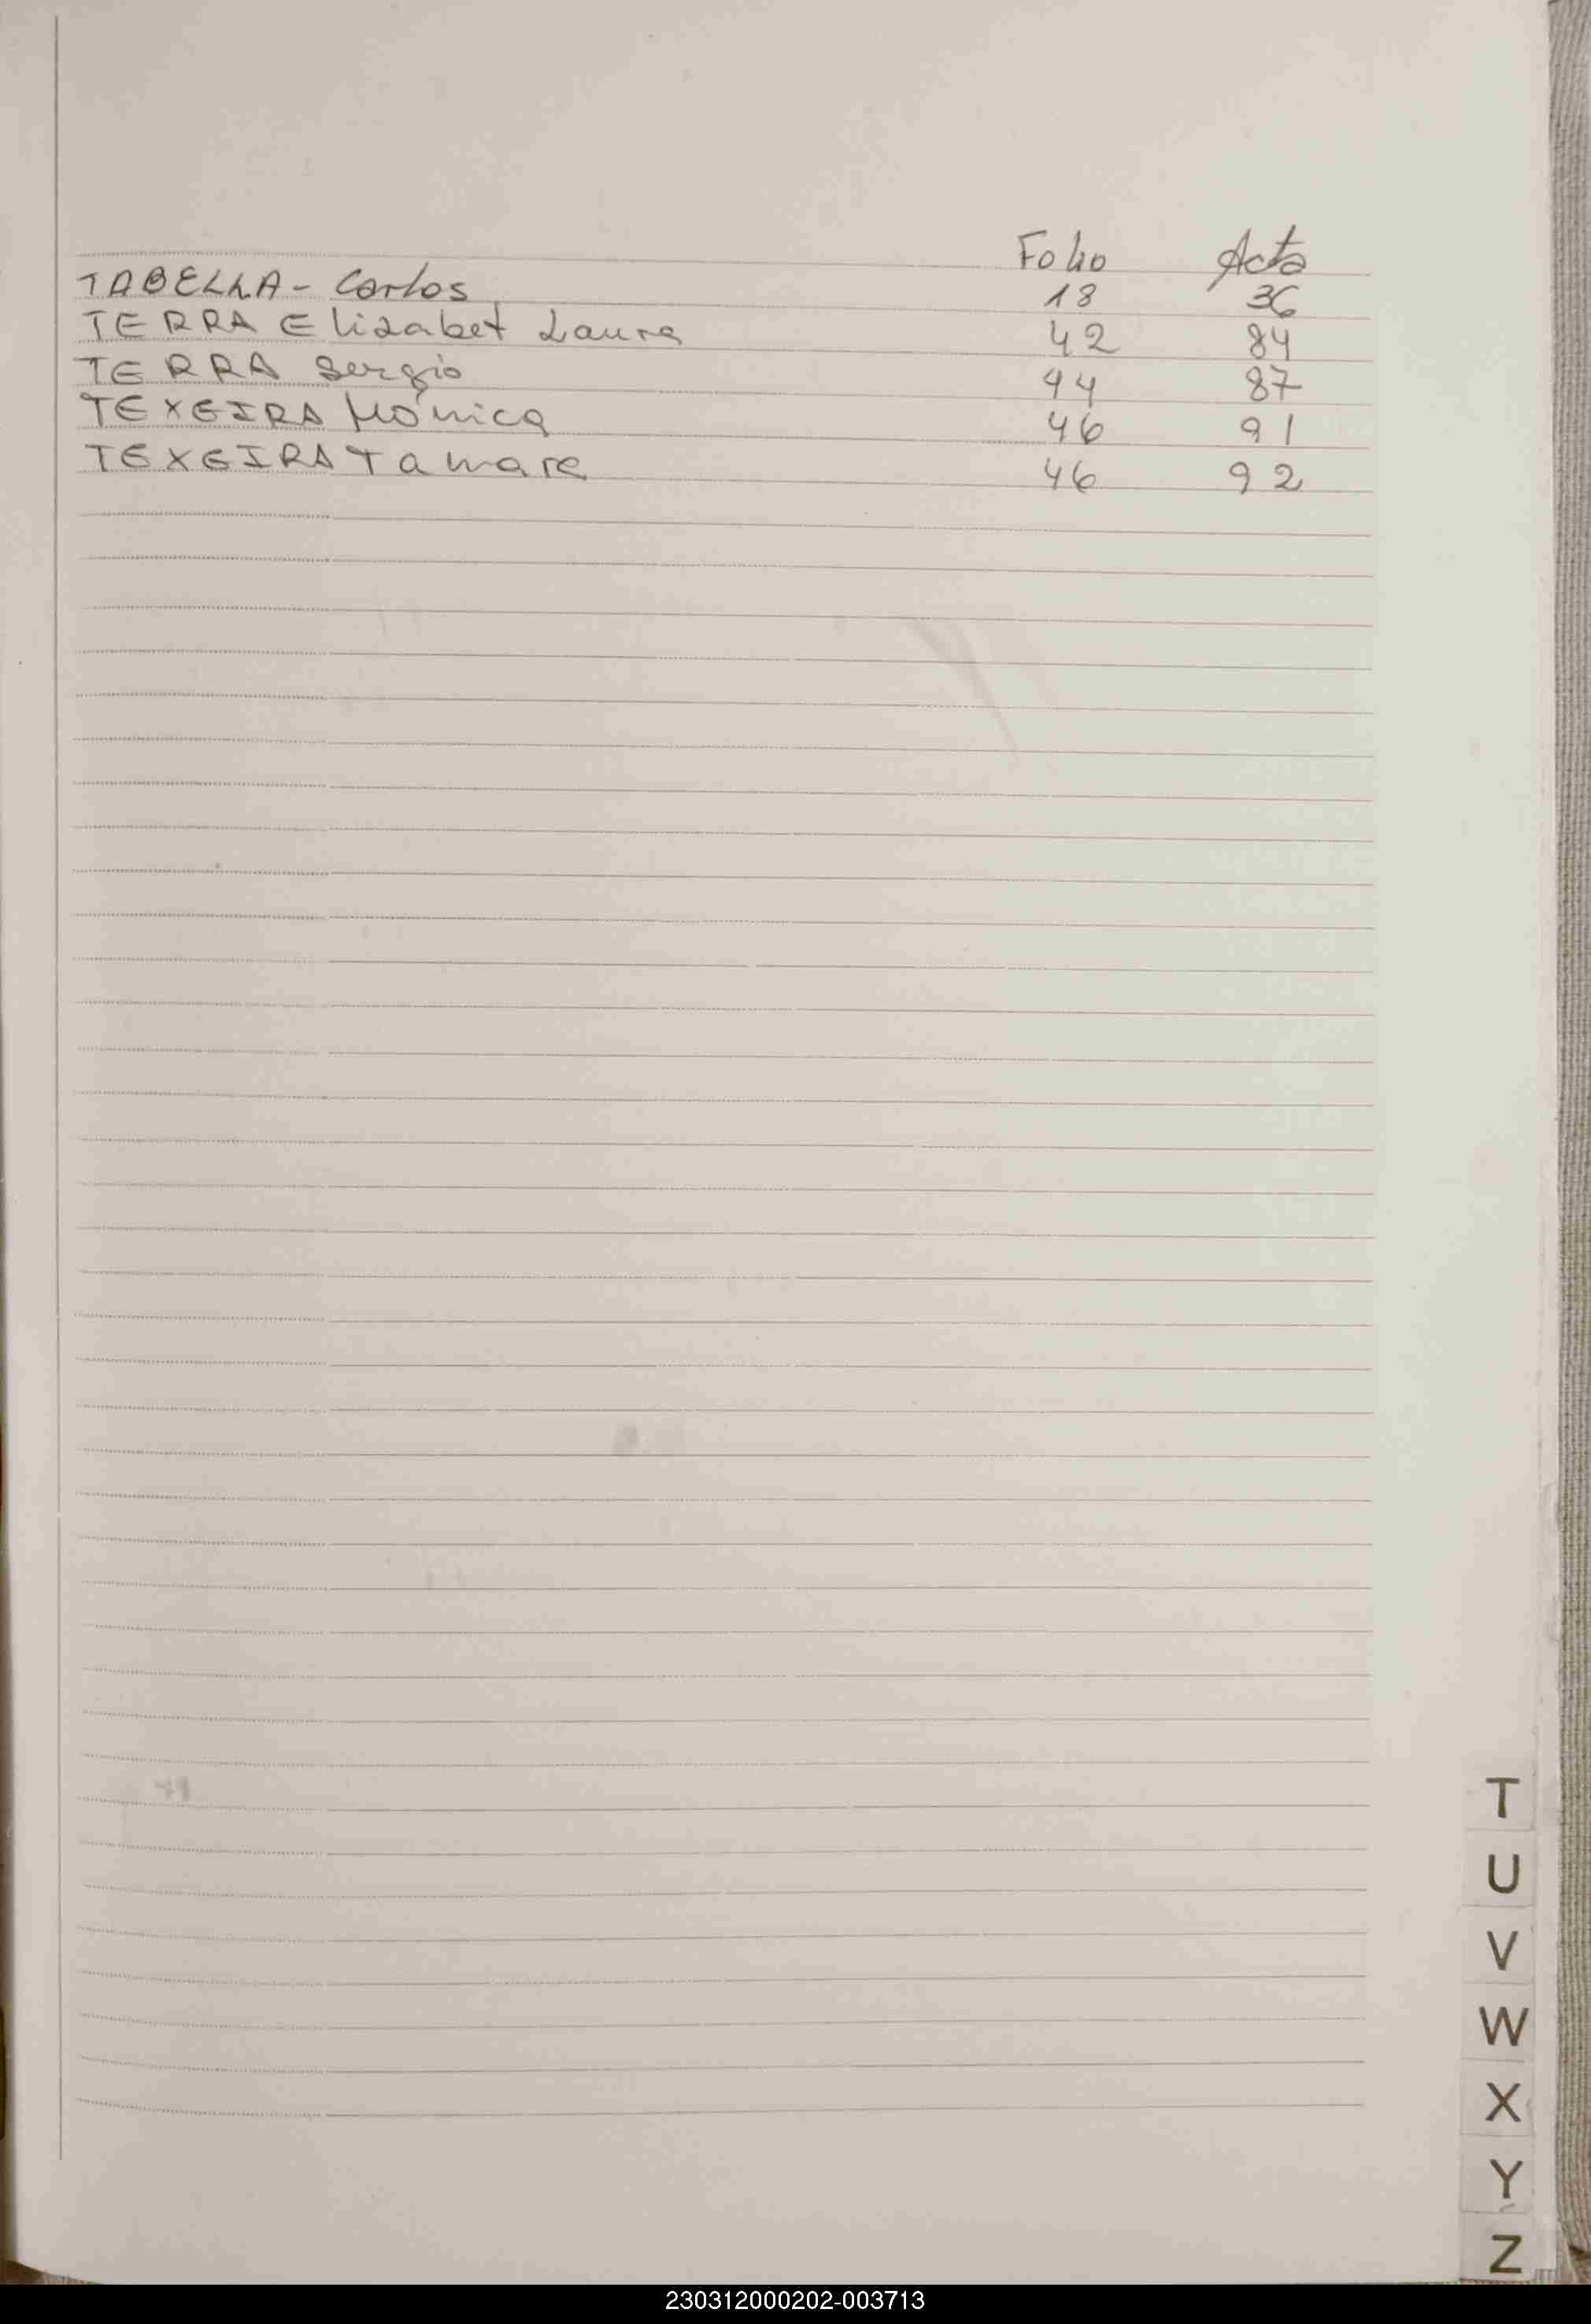 Folio Acta
TABELLA - Carlos 18 36
TERRA Elizabet Laura 42 84
TERRA Sergio 44 87
TEXEIRA Mónica 46 91
TEXEIRA Tamare 46 92
T
U
V
W
X
Y
Z
230312000202-003713